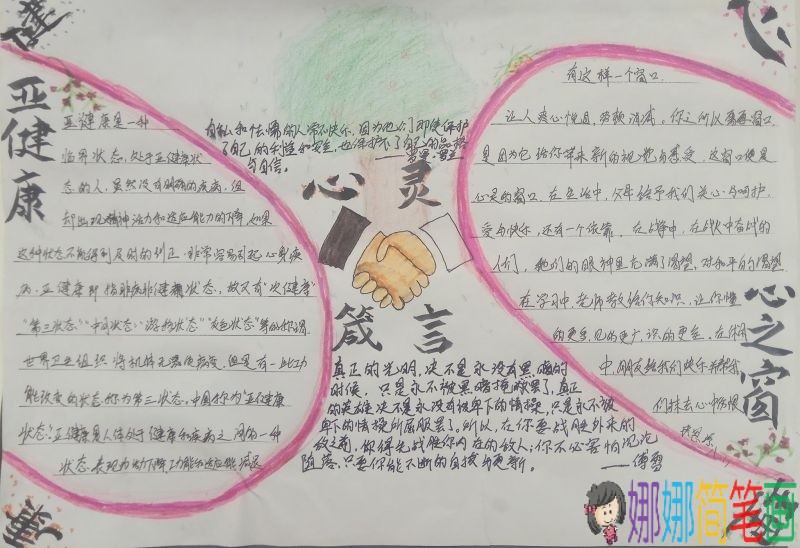 亚健康
亚健康是一种
临界状态，处于亚健康状
态的人，虽然没有明确的疾病，但
却出现精神活力和适应能力的下降，如果
这种状态不能得到及时的纠正，非常容易引起心身疾
病。亚健康即指非病非健康状态，故又有"次健康"
"第三状态""中间状态""游移状态""灰色状态"等的称谓
世界卫生组织将机体无器质病变，但是有一些功
能改变的状态称为"第三状态"，中国称为"亚健康
状态"。亚健康是人体处于健康和疾病之间的一种
状态。表现为活力下降，功能和适应能力减退
自私和怯懦的人常不快乐，因为他们即使保护
了自己的利益和安全，也保护不了自己的品格
与自信。
心灵
箴言
真正的光明，决不是永没有黑暗的
时候，只是永不被黑暗掩蔽罢了。真正
的英雄决不是永没有卑下的情操，只是永不被
卑下的情操所屈服罢了。所以，在你要战胜外来的
敌之前，你得先战胜你内在的敌人；你不必害怕沉沦
堕落，只要你能不断的自拔与更新。
——傅雷
有这样一个窗口
让人赏心悦目，劳顿消减，你之所以需要窗口
是因为它给你带来新的视觉与感受，这窗口便是
心灵的窗口。在生活中，父母给予我们关心与呵护，
爱与快乐，还有一个依靠。在战争中，在战火中奋战的
人们，他们的眼神里充满了渴望，对和平的渴望
在学习中，老师教给你知识，让你懂
的更多，见的更广，识的更全。在休闲
中，朋友给我们快乐并帮我
们抹去心中
心之窗
娜娜简笔画